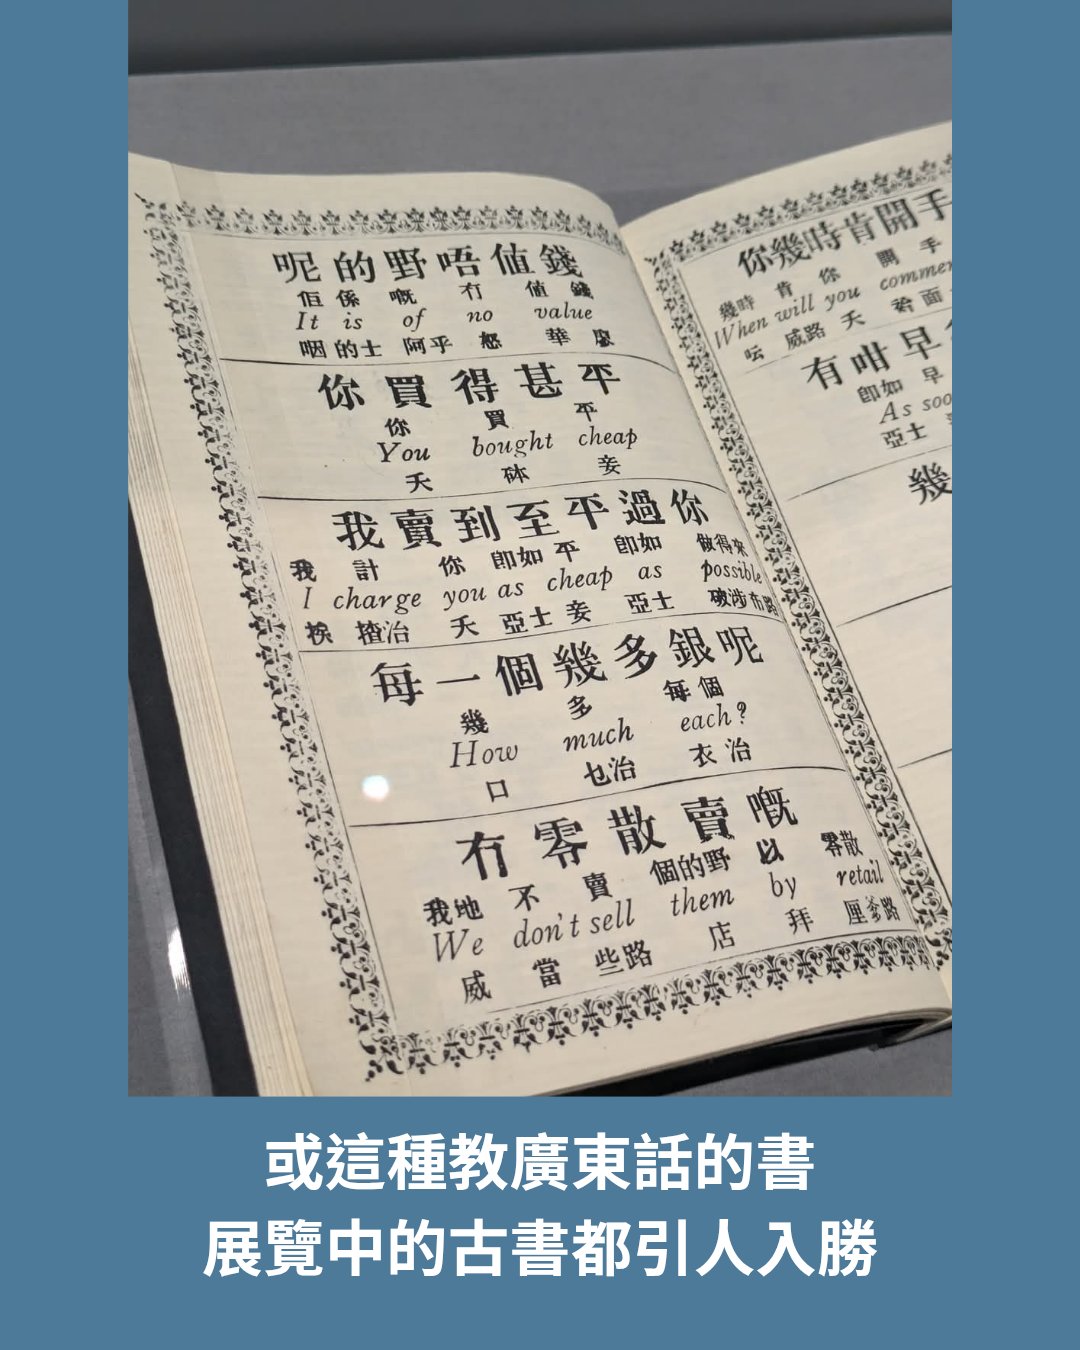 呢的野唔值錢
佢係 嘅 冇 值 錢
It is of no value
咽的士 阿乎 怒 華
你買得甚平
你 買 平
You bought cheap
夭 砵 妾
我賣到至平過你
我 計 你 即如 平 即如 做得來
I charge you as cheap as possible
挨 揸治 夭 亞士 妾 亞士 破涉布路
每一個幾多銀呢
幾 多 每個
How much each?
口 乜治 衣治
冇零散賣嘅
我哋 不 賣 個的野 以 零散
We don't sell them by retail
威 當 些路 店 拜 厘爹路
你幾時肯開手
幾時 肯 你 開 手
When will you
呍 威路 夭
有咁早
即如 早
As
亞士
幾
或這種教廣東話的書
展覽中的古書都引人入勝